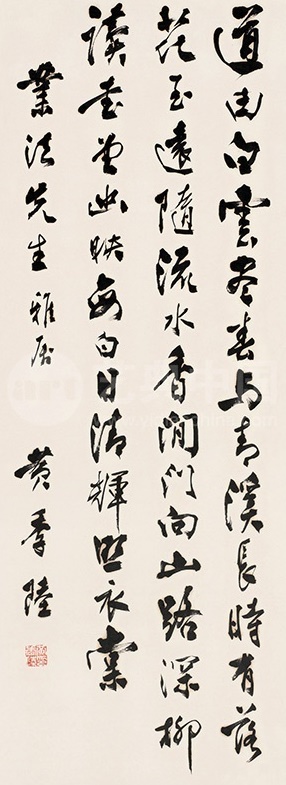 道由白雲盡春与青溪長時有落
花至遠隨流水香閒门向山路深柳
讀書堂幽映每白日清輝照衣裳
業法先生雅屬 黃季陸